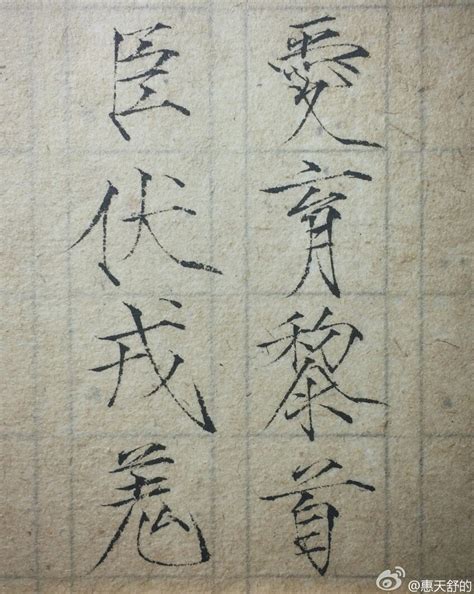 愛育黎首
臣伏戎羌
@惠天舒的